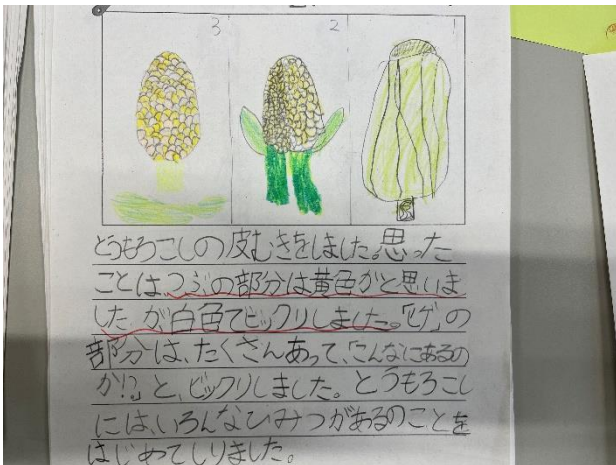 3 2 1
とうもろこしの皮むきをしました。思った
ことは、つぶの部分は黄色かと思いま
した。が白色でビックリしました。「ヒゲ」の
部分は、たくさんあって、「こんなにあるの
か!?」と、ビックリしました。とうもろこし
には、いろんなひみつがあるのことを
はじめてしりました。